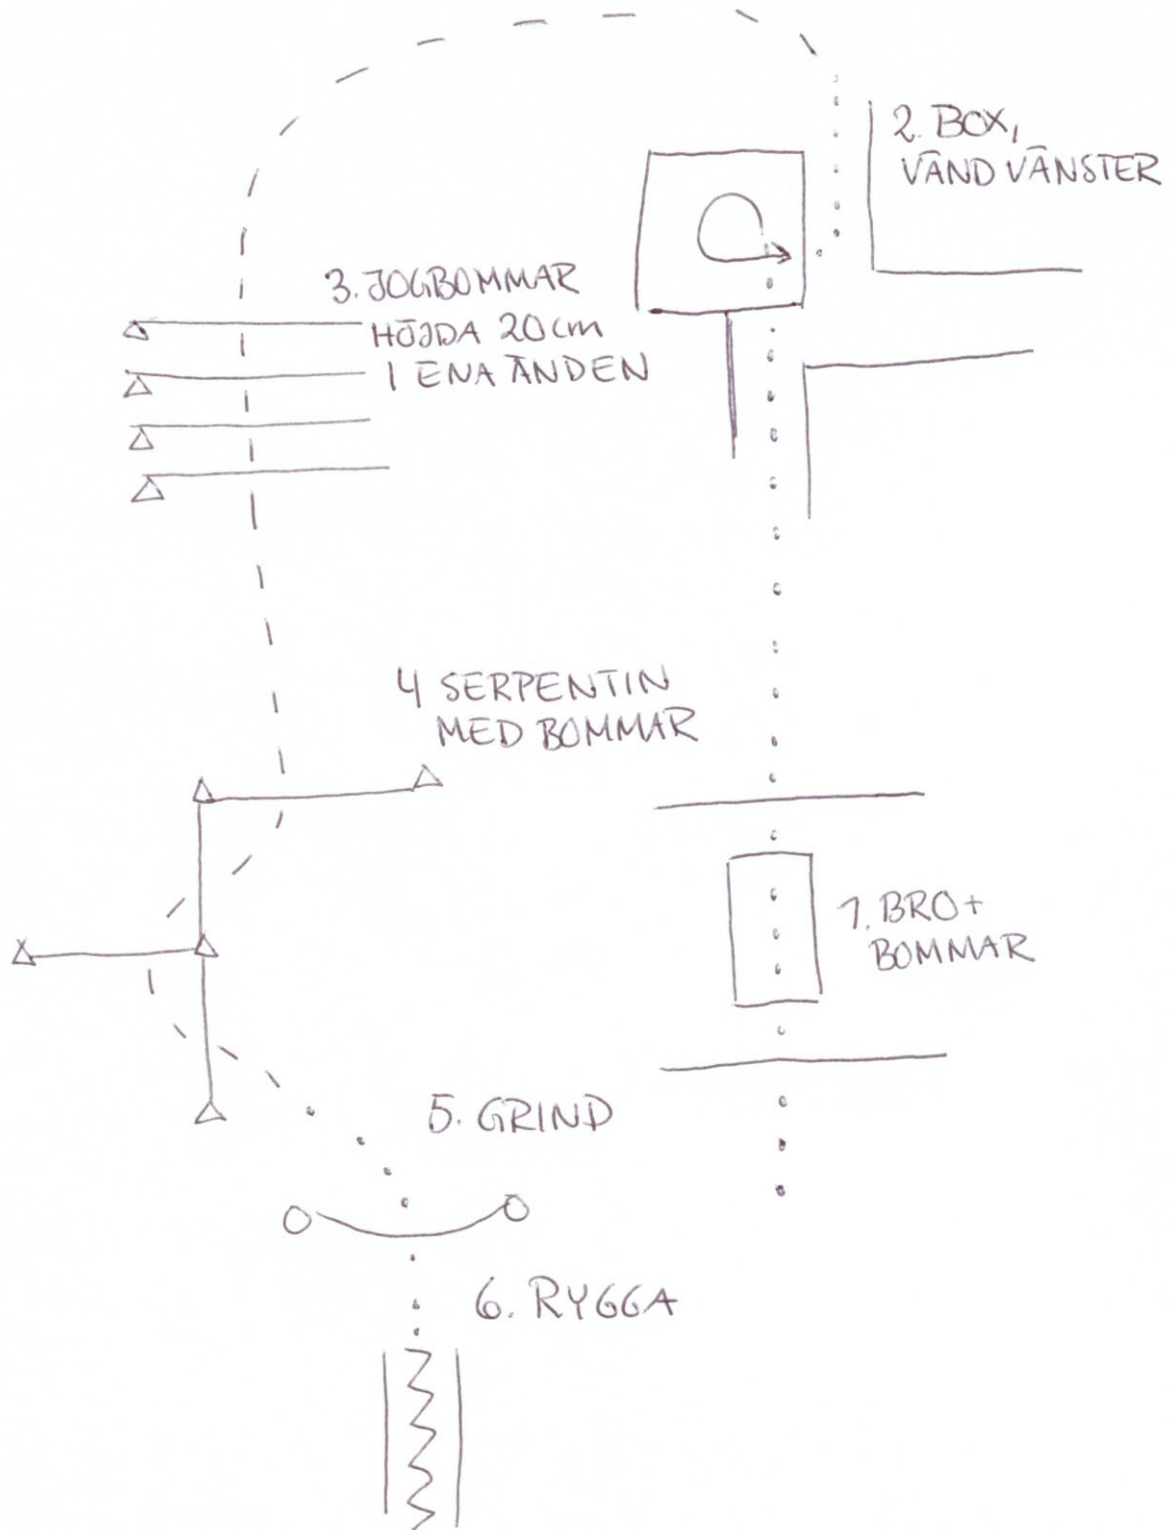 2. BOX,
VÄND VÄNSTER
3. JOGBOMMAR
HÖJDA 20cm
I ENA ÄNDEN
4 SERPENTIN
MED BOMMAR
1. BRO+
BOMMAR
5. GRIND
6. RYGGA